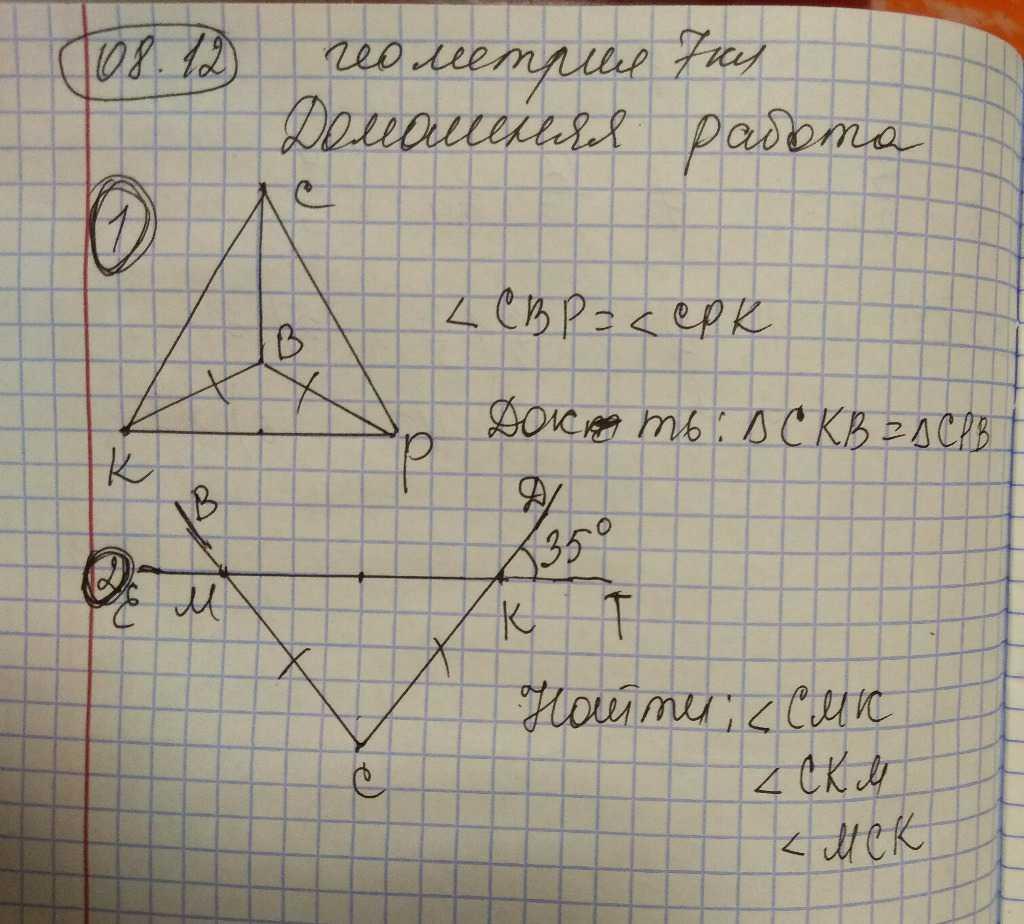 08.12 геометрия 7кл
Домашняя работа
1
C
B
K
P
< CBP = < CPK
Док ть: Δ CKB = Δ CPB
2
B
Д
35°
E
M
K
T
C
Найти: < CMK
< CKM
< MCK